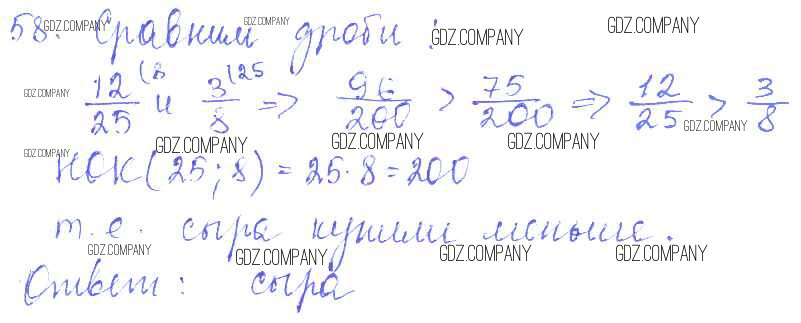 58. Сравним дроби :
12/25 (8 и 3/8 (25 => 96/200 > 75/200 => 12/25 > 3/8
НОК(25;8) = 25·8=200
т.е. сыра купили меньше.
Ответ: сыра
GDZ.COMPANY
GDZ.COMPANY
GDZ.COMPANY
GDZ.COMPANY
GDZ.COMPANY
GDZ.COMPANY
GDZ.COMPANY
GDZ.COMPANY
GDZ.COMPANY
GDZ.COMPANY
GDZ.COMPANY
GDZ.COMPANY
GDZ.COMPANY
GDZ.COMPANY